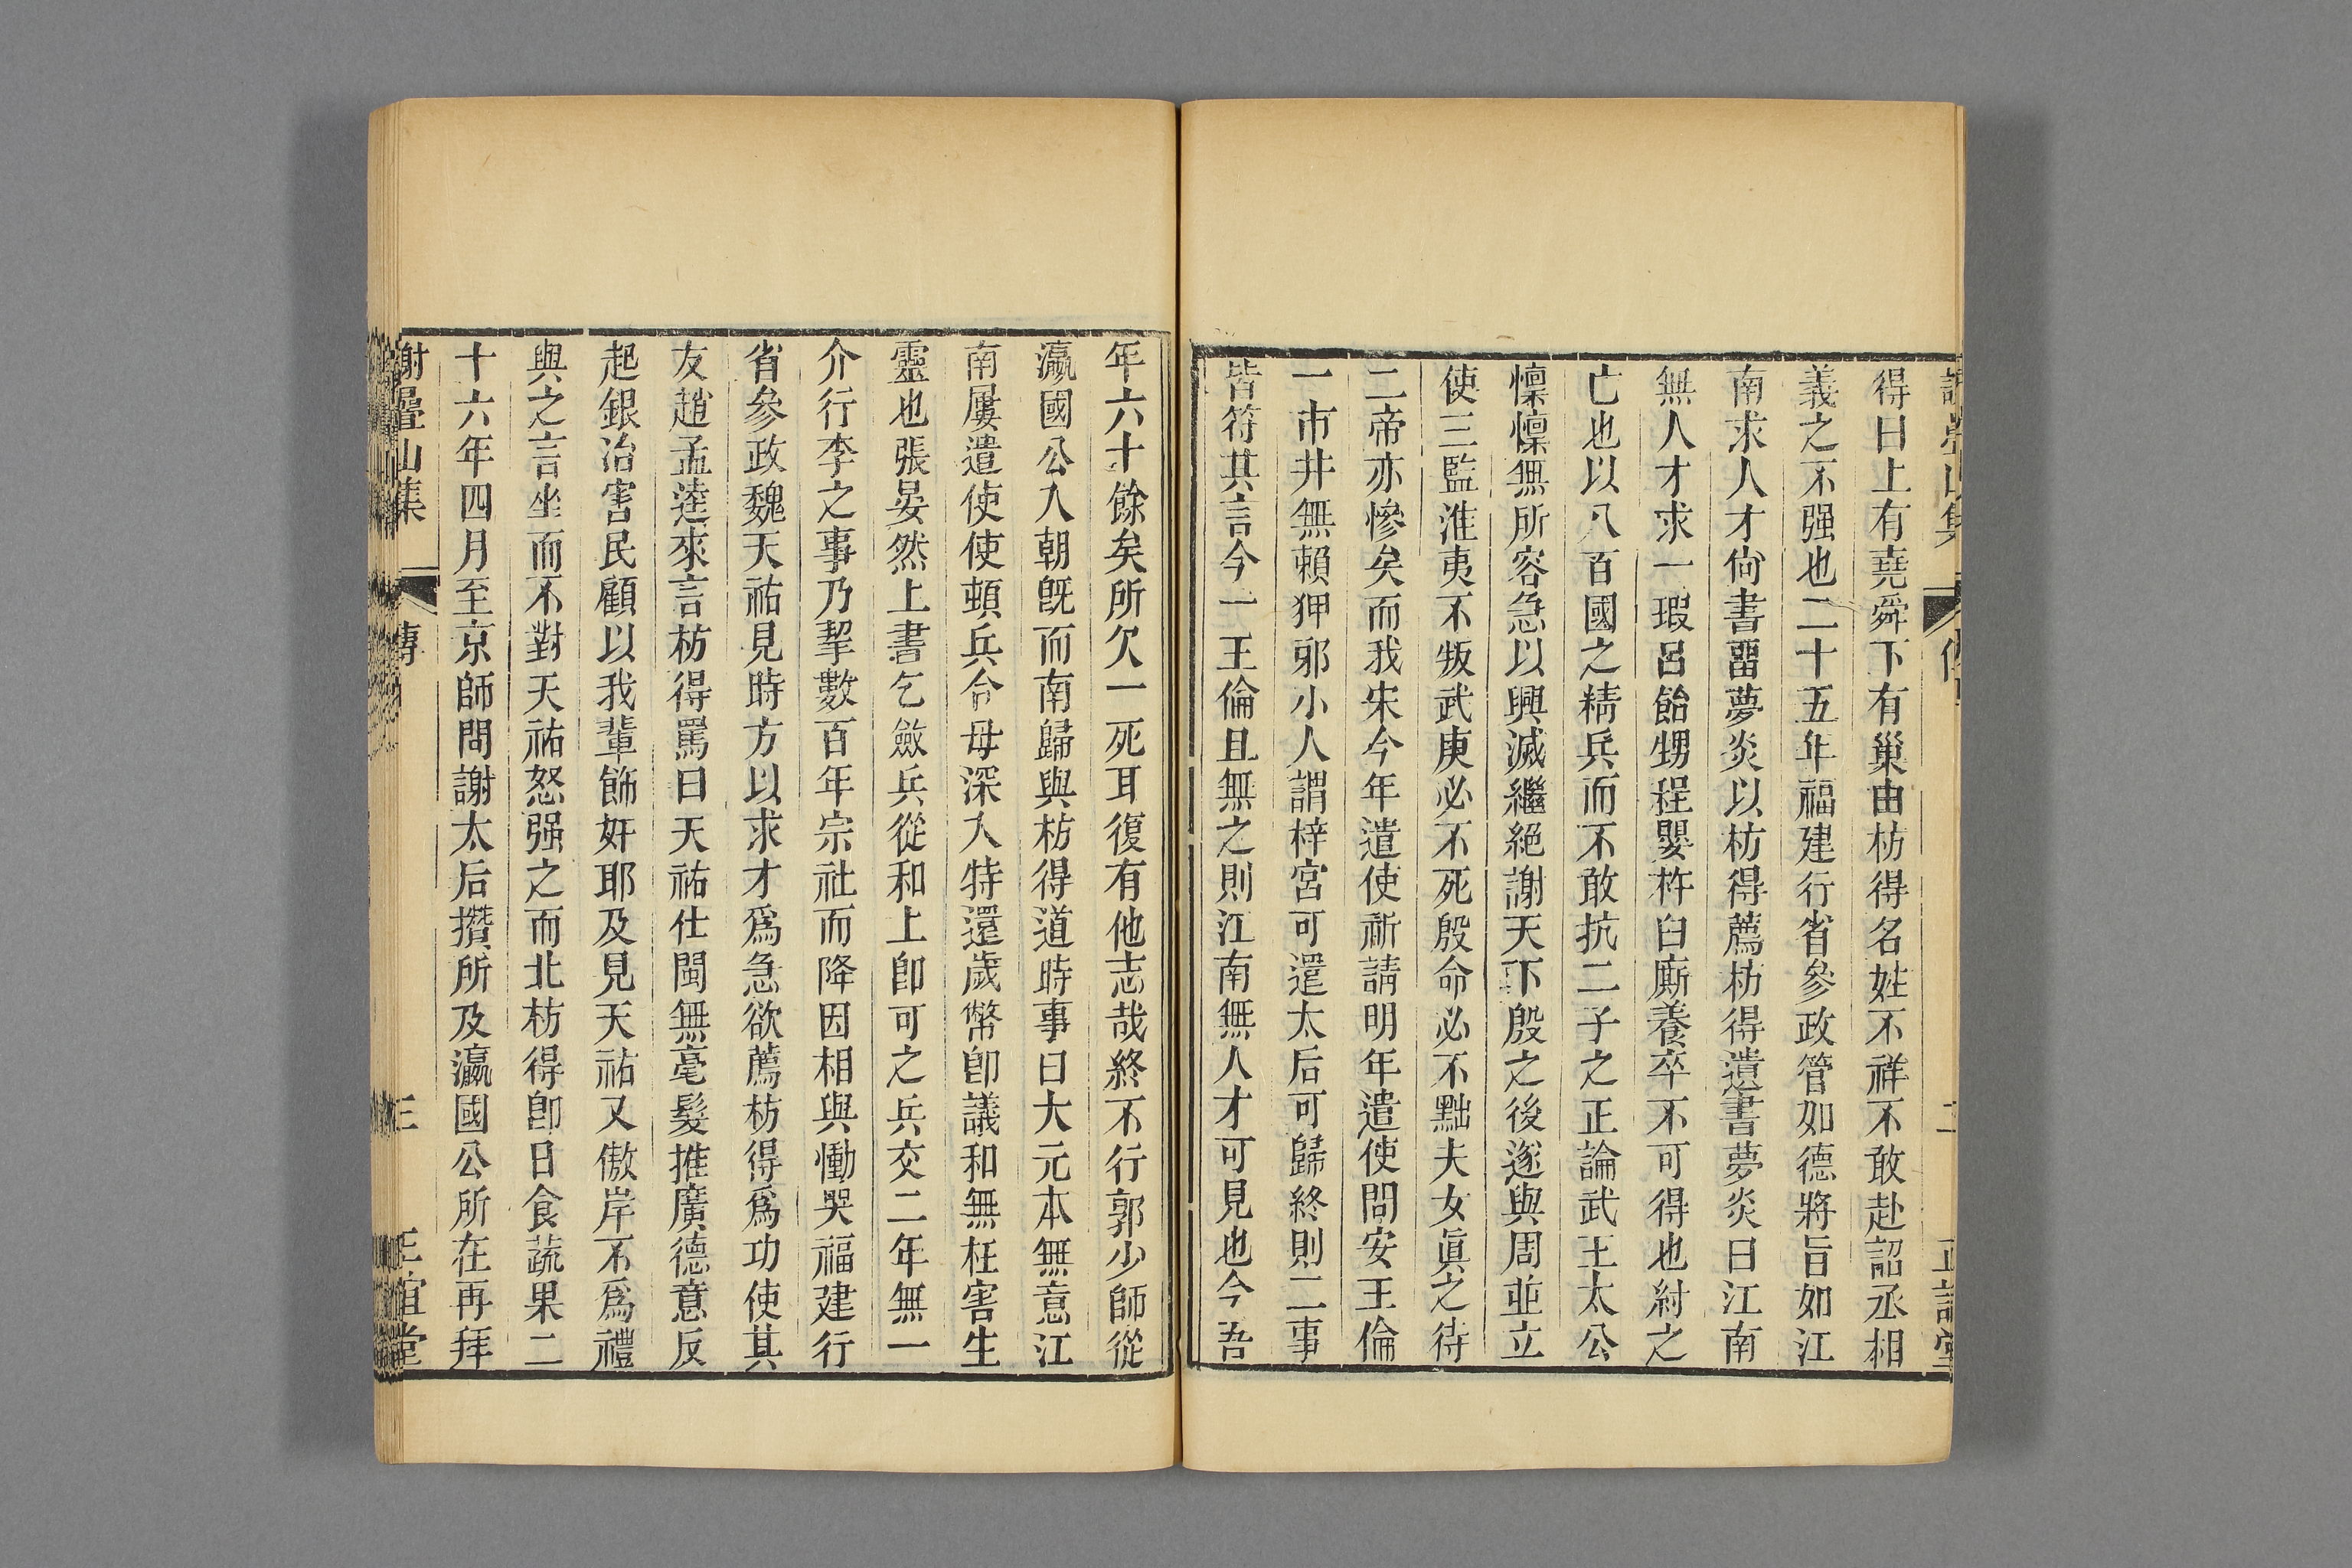 得曰上有堯舜下有巢由枋得名姓不祥不敢赴詔丞相
義之不强也二十五年福建行省參政管如德將旨如江
南求人才尙書畱夢炎以枋得薦枋得遺書夢炎曰江南
無人才求一瑕呂飴甥程嬰杵臼厮養卒不可得也紂之
亡也以八百國之精兵而不敢抗二子之正論武王太公
懍懍無所容急以興滅繼絕謝天下殷之後遂與周並立
使三監淮夷不叛武庚必不死殷命必不黜夫女眞之待
二帝亦慘矣而我宋今年遣使祈請明年遣使問安王倫
一市井無賴狎邪小人謂梓宮可還太后可歸終則二事
皆符其言今一王倫且無之則江南無人才可見也今吾
年六十餘矣所欠一死耳復有他志哉終不行郭少師從
瀛國公入朝旣而南歸與枋得道時事曰大元本無意江
南屢遣使使頓兵令毋深入特還歲幣卽議和無枉害生
靈也張晏然上書乞斂兵從和上卽可之兵交二年無一
介行李之事乃挈數百年宗社而降因相與慟哭福建行
省參政魏天祐見時方以求才爲急欲薦枋得爲功使其
友趙孟𨔝來言枋得罵曰天祐仕閩無毫髮推廣德意反
起銀冶害民顧以我輩飾奸耶及見天祐又傲岸不爲禮
與之言坐而不對天祐怒强之而北枋得卽日食蔬果二
十六年四月至京師問謝太后攢所及瀛國公所在再拜
謝疊山集 傳 三 正誼堂